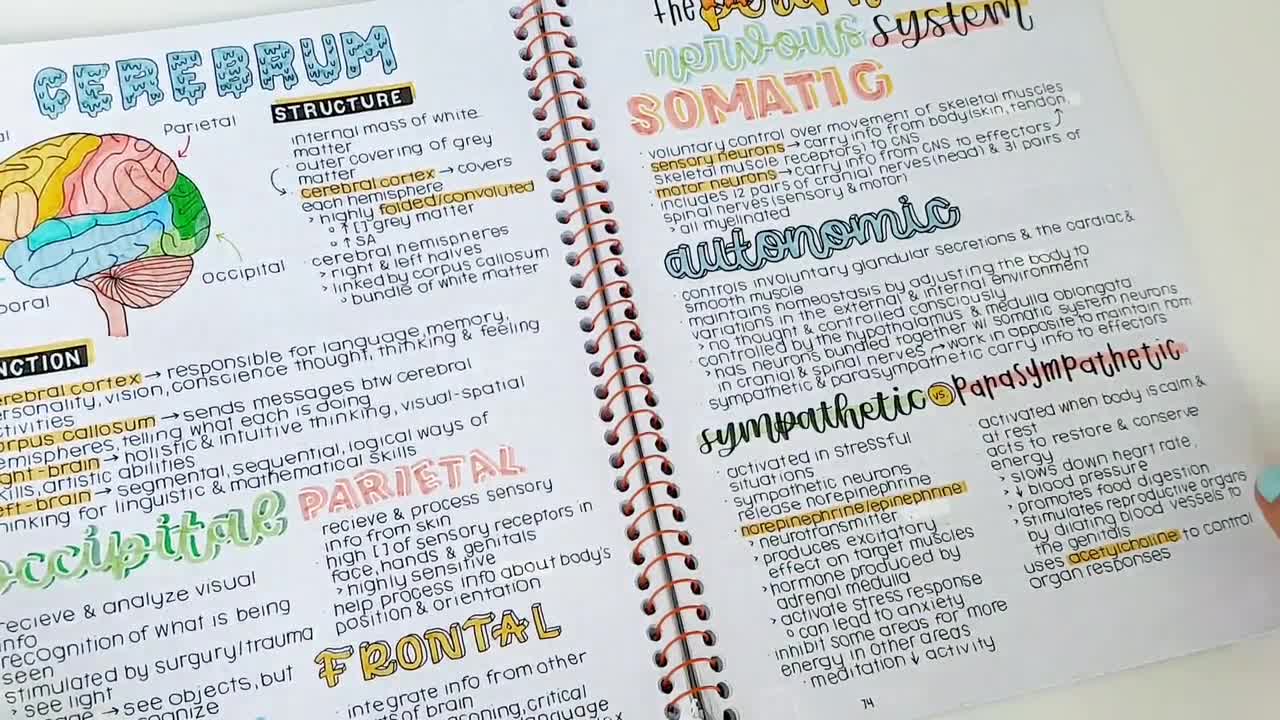 CEREBRUM
STRUCTURE
Parietal
Occipital
internal mass of white
matter
· outer covering of grey
matter
· cerebral cortex → covers
each hemisphere
> highly folded/convoluted
o ↑ [ ] grey matter
o ↑ SA
· cerebral hemispheres
> right & left halves
> linked by corpus callosum
o bundle of white matter
→ responsible for language, memory,
vision, conscience thought, thinking & feeling
→ sends messages btw cerebral
telling what each is doing
→ holistic & intuitive thinking, visual-spatial
artistic abilities
→ segmental, sequential, logical ways of
thinking for linguistic & mathematical skills
occipital
recieve & analyze visual
info
recognition of what is being
seen
stimulated by surgury/trauma
> see light
→ see objects, but
PARIETAL
· recieve & process sensory
info from skin
· high [ ] of sensory receptors in
face, hands & genitals
> highly sensitive
· help process info about body's
position & orientation
FRONTAL
· integrate info from other
of brain
critical
language
the
nervous system
SOMATIC
· voluntary control over movement of skeletal muscles
· sensory neurons → carry info from body (skin, tendon,
skeletal muscle receptors) to CNS
· motor neurons → carry info from CNS to effectors
· includes 12 pairs of cranial nerves (head) & 31 pairs of
spinal nerves (sensory & motor)
> all myelinated
autonomic
· controls involuntary glandular secretions & the cardiac &
smooth muscle
· maintains homeostasis by adjusting the body to
variations in the external & internal environment
> no thought & controlled consciously
· controlled by the hypothalamus & medulla oblongata
> has neurons bundled together w/ somatic system neurons
in cranial & spinal nerves → work in opposite to maintain hom
· sympathetic & parasympathetic carry info to effectors
sympathetic vs. parasympathetic
· activated in stressful
situations
· sympathetic neurons
release norepinephrine
norepinephrine/epinephrine
> neurotransmitter
> produces excitatory
effect on target muscles
> hormone produced by
adrenal medulla
> activate stress response
o can lead to anxiety
· inhibit some areas for more
energy in other areas
· meditation ↓ activity
activated when body is calm &
at rest
acts to restore & conserve
energy
> slows down heart rate,
↓ blood pressure
> promotes food digestion
> stimulates reproductive organs
by dilating blood vessels to
the genitals
uses acetylcholine to control
organ responses
74